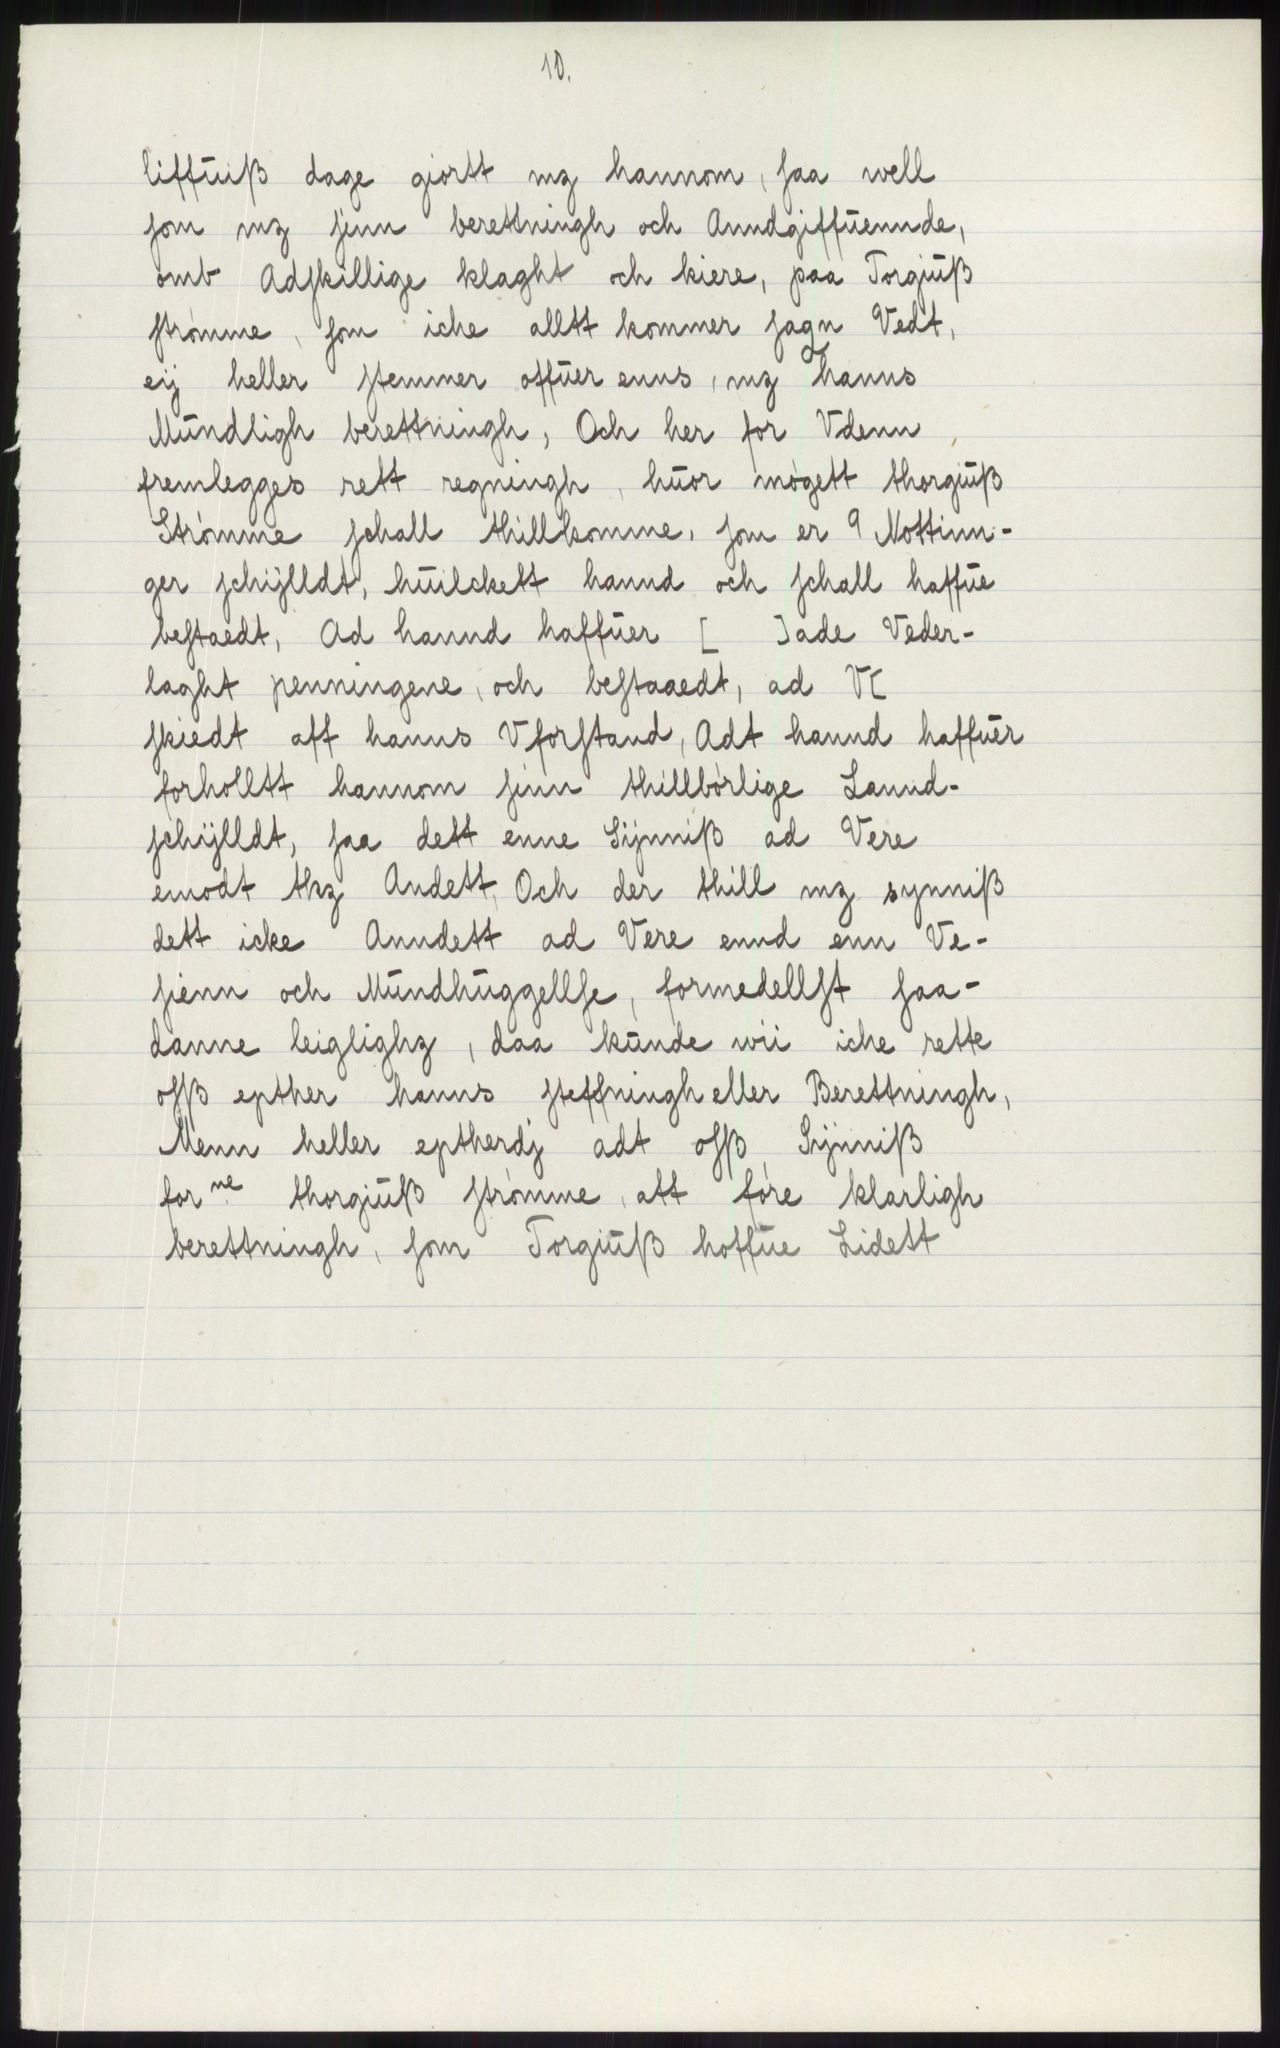 10.
liffuiß dage giortt mz hannom, saa well
som mz sinn berettningh och Anndgiffuennde,
omb Adskillige klaght och kiere, paa Torgiuß
strømme, som iche alltt kommer sagn Vedt,
eij heller stemmer offuer enns, mz hanns
Mundligh berettningh, Och her for Vdenn
fremlegges rett regningh, huor møgett thorgiuß
Strømme schall thillkomme, som er 9 Nottinn-
ger schijlldt, huilckett hannd och schall haffue
bestaedt, Ad hannd haffuer [ ]ade Veder-
laght penningene, och bestaaedt, ad V[
skiedt aff hanns Vforstand, Adt hannd haffuer
forholltt hannom sinn thillbørlige Lannd-
schijlldt, saa dett enne Sijnniß ad Vere
emodt thz Andett, Och der thill mz synniß
dett icke Anndett ad Vere ennd enn Ve-
sienn och Mundhuggellse, formedellst saa-
danne leiglighz, daa kunde wii iche rette
osß epther hanns steffningh eller Berettningh,
Menn heller eptherdj adt osß Sijnniß
for ne thorgiuß strømme, att føre klarligh
berettningh, som Torgiuß hoffue Lidett